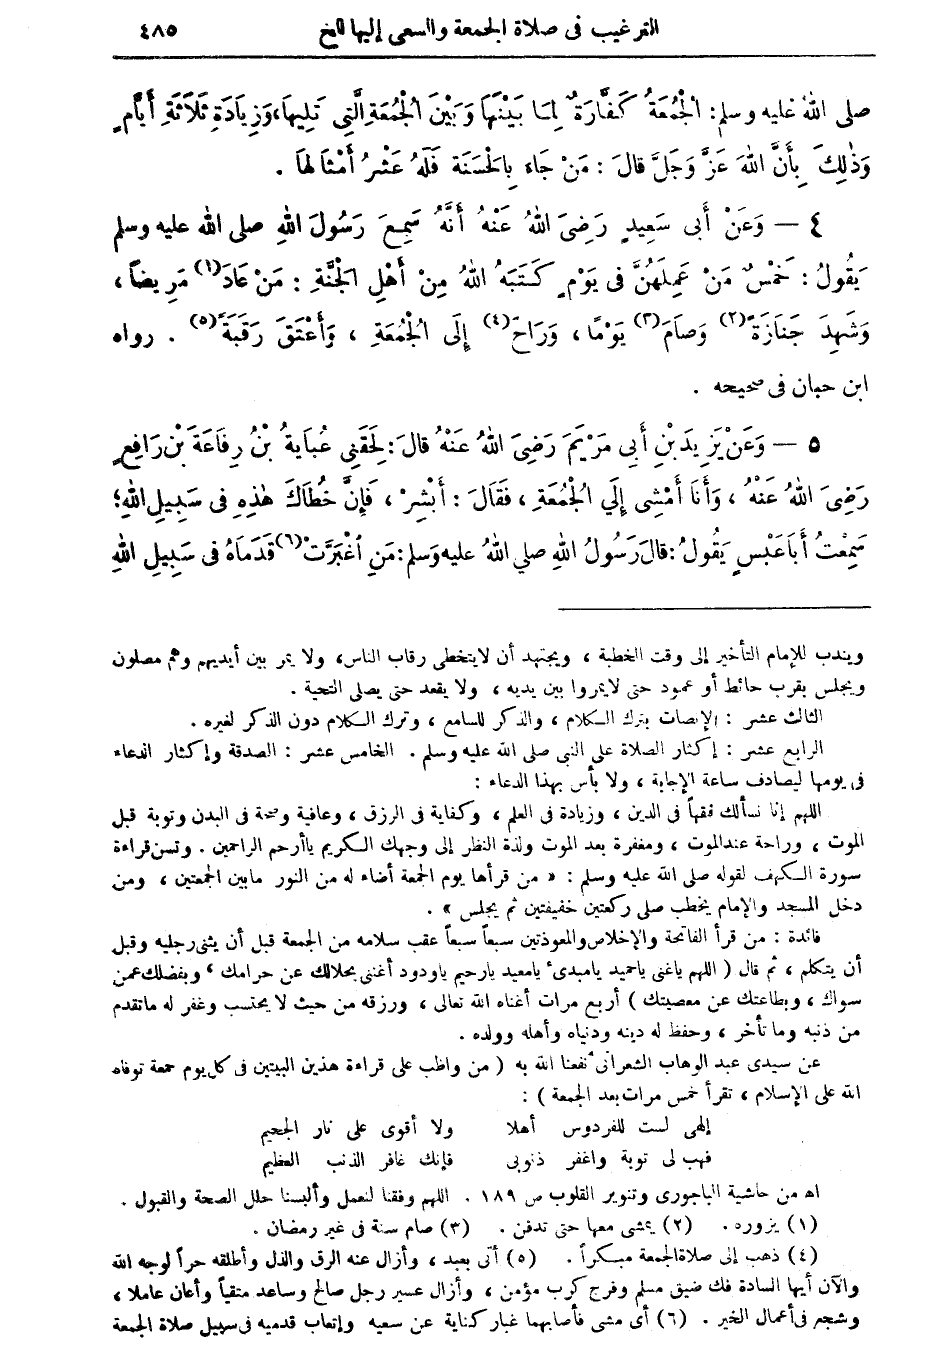 الترغيب فى صلاة الجمعة والسعى إليها الخ ٤٨٥
صلى اللهُ عليه وسلم: الْجُمُعَةُ كَفَّارَةٌ لِمَا بَيْنَهَا وَبَيْنَ الْجُمُعَةِ الَّتِى تَلِيهَا، وَزِيَادَةِ ثَلَاثَةِ أَيَّامٍ
وَذٰلِكَ بِأَنَّ اللهَ عَزَّ وَجَلَّ قالَ : مَنْ جَاءَ بِالْحَسَنَةِ فَلَهُ عَشْرُ أَمْثَالِهَا .
٤ — وَعَنْ أَبى سَعِيدٍ رَضِىَ اللهُ عَنْهُ أَنَّهُ سَمِعَ رَسُولَ اللهِ صلى الله عليه وسلم
يَقُولُ : خَمْسٌ مَنْ عَمِلَهُنَّ فى يَوْمٍ كَتَبَهُ اللهُ مِنْ أَهْلِ الْجَنَّةِ : مَنْ عَادَ(١) مَرِيضاً ،
وَشَهِدَ جَنَازَةً(٢) وَصَامَ(٣) يَوْمًا ، وَرَاحَ(٤) إِلَى الْجُمُعَةِ ، وَأَعْتَقَ رَقَبَةً(٥) . رواه
ابن حبان فى صحيحه .
٥ — وَعَنْ يَزِيدَ بْنِ أَبِى مَرْيَمَ رَضِىَ اللهُ عَنْهُ قالَ : لَحِقَنِى عُبَايةُ بْنُ رِفَاعَةَ بْن رَافِعٍ
رَضِىَ اللهُ عَنْهُ ، وَأَنَا أَمْشِى إِلَى الْجُمُعَةِ ، فَقَالَ : أَبْشِرْ ، فَإِنَّ خُطَاكَ هٰذِهِ فى سَبِيلِ اللهِ ؛
سَمِعْتُ أَبَا عَبْسٍ يَقُولُ : قالَ رَسُولُ اللهِ صلى اللهُ عليه وَسلم : مَنِ اغْبَرَّتْ(٦) قَدَمَاهُ فى سَبِيلِ اللهِ
ويندب للإمام التأخير إلى وقت الخطبة ، ويجتهد أن لايتخطى رقاب الناس، ولا يمر بين أيديهم وهم مصلون
ويجلس بقرب حائط أو عمود حتى لايمروا بين يديه ، ولا يقعد حتى يصلى التحية .
الثالث عشر : الإنصات بترك الكلام ، والذكر للسامع ، وترك الكلام دون الذكر لغيره .
الرابع عشر : إكثار الصلاة على النبى صلى الله عليه وسلم . الخامس عشر : الصدقة وإكثار الدعاء
فى يومها ليصادف ساعة الإجابة ، ولا بأس بهذا الدعاء :
اللهم إنا نسألك فقهاً فى الدين ، وزيادة فى العلم ، وكفاية فى الرزق ، وعافية وصحة فى البدن وتوبة قبل
الموت ، وراحة عندالموت ، ومغفرة بعد الموت ولذة النظر إلى وجهك الكريم ياأرحم الراحمين . وتسن قراءة
سورة الكهف لقوله صلى الله عليه وسلم : « من قرأها يوم الجمعة أضاء له من النور مابين الجمعتين ، ومن
دخل المسجد والإمام يخطب صلى ركعتين خفيفتين ثم يجلس » .
فائدة : من قرأ الفاتحة والإخلاص والمعوذتين سبعاً سبعاً عقب سلامه من الجمعة قبل أن يثنى رجليه وقبل
أن يتكلم ، ثم قال ( اللهم ياغنى ياحميد يامبدىء يامعيد يارحيم ياودود أغننى بحلالك عن حرامك ، وبفضلك عمن
سواك ، وبطاعتك عن معصيتك ) أربع مرات أغناه الله تعالى ، ورزقه من حيث لا يحتسب وغفر له ماتقدم
من ذنبه وما تأخر ، وحفظ له دينه ودنياه وأهله وولده .
عن سيدى عبد الوهاب الشعرانى نفعنا الله به ( من واظب على قراءة هذين البيتين فى كل يوم جمعة توفاه
الله على الإسلام ، تقرأ خمس مرات بعد الجمعة ) :
إلهى لست للفردوس أهلا ولا أقوى على نار الجحيم
فهب لى توبة واغفر ذنوبى فإنك غافر الذنب العظيم
اهـ من حاشية الباجورى وتنوير القلوب ص ١٨٩ . اللهم وفقنا لنعمل وألبسنا حلل الصحة والقبول .
(١) يزوره . (٢) يمشى معها حتى تدفن . (٣) صام سنة فى غير رمضان .
(٤) ذهب إلى صلاة الجمعة مبكراً . (٥) أتى بعبد ، وأزال عنه الرق والذل وأطلقه حراً لوجه الله
والآن أيها السادة فك ضيق مسلم وفرج كرب مؤمن ، وأزال عسير رجل صالح وساعد متقياً وأعان عاملا ،
وشجع فى أعمال الخير . (٦) أى مشى فأصابهما غبار كناية عن سعيه وإتعاب قدميه فى سبيل صلاة الجمعة